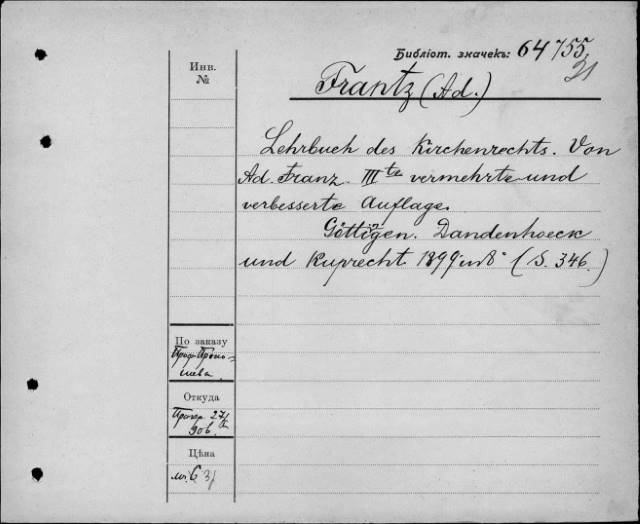 Библіот. значекъ: 64755
21
Инв.
№
Frantz (Ad.)
Lehrbuch des Kirchenrechts. Von
Ad. Franz. IIIte vermehrte und
verbesserte Auflage.
Göttigen. Dandenhoeck
und Ruprecht. 1899 in 8° (S. 346.)
По заказу
Проф.
Откуда
27/X
90 г.
Цѣна
6